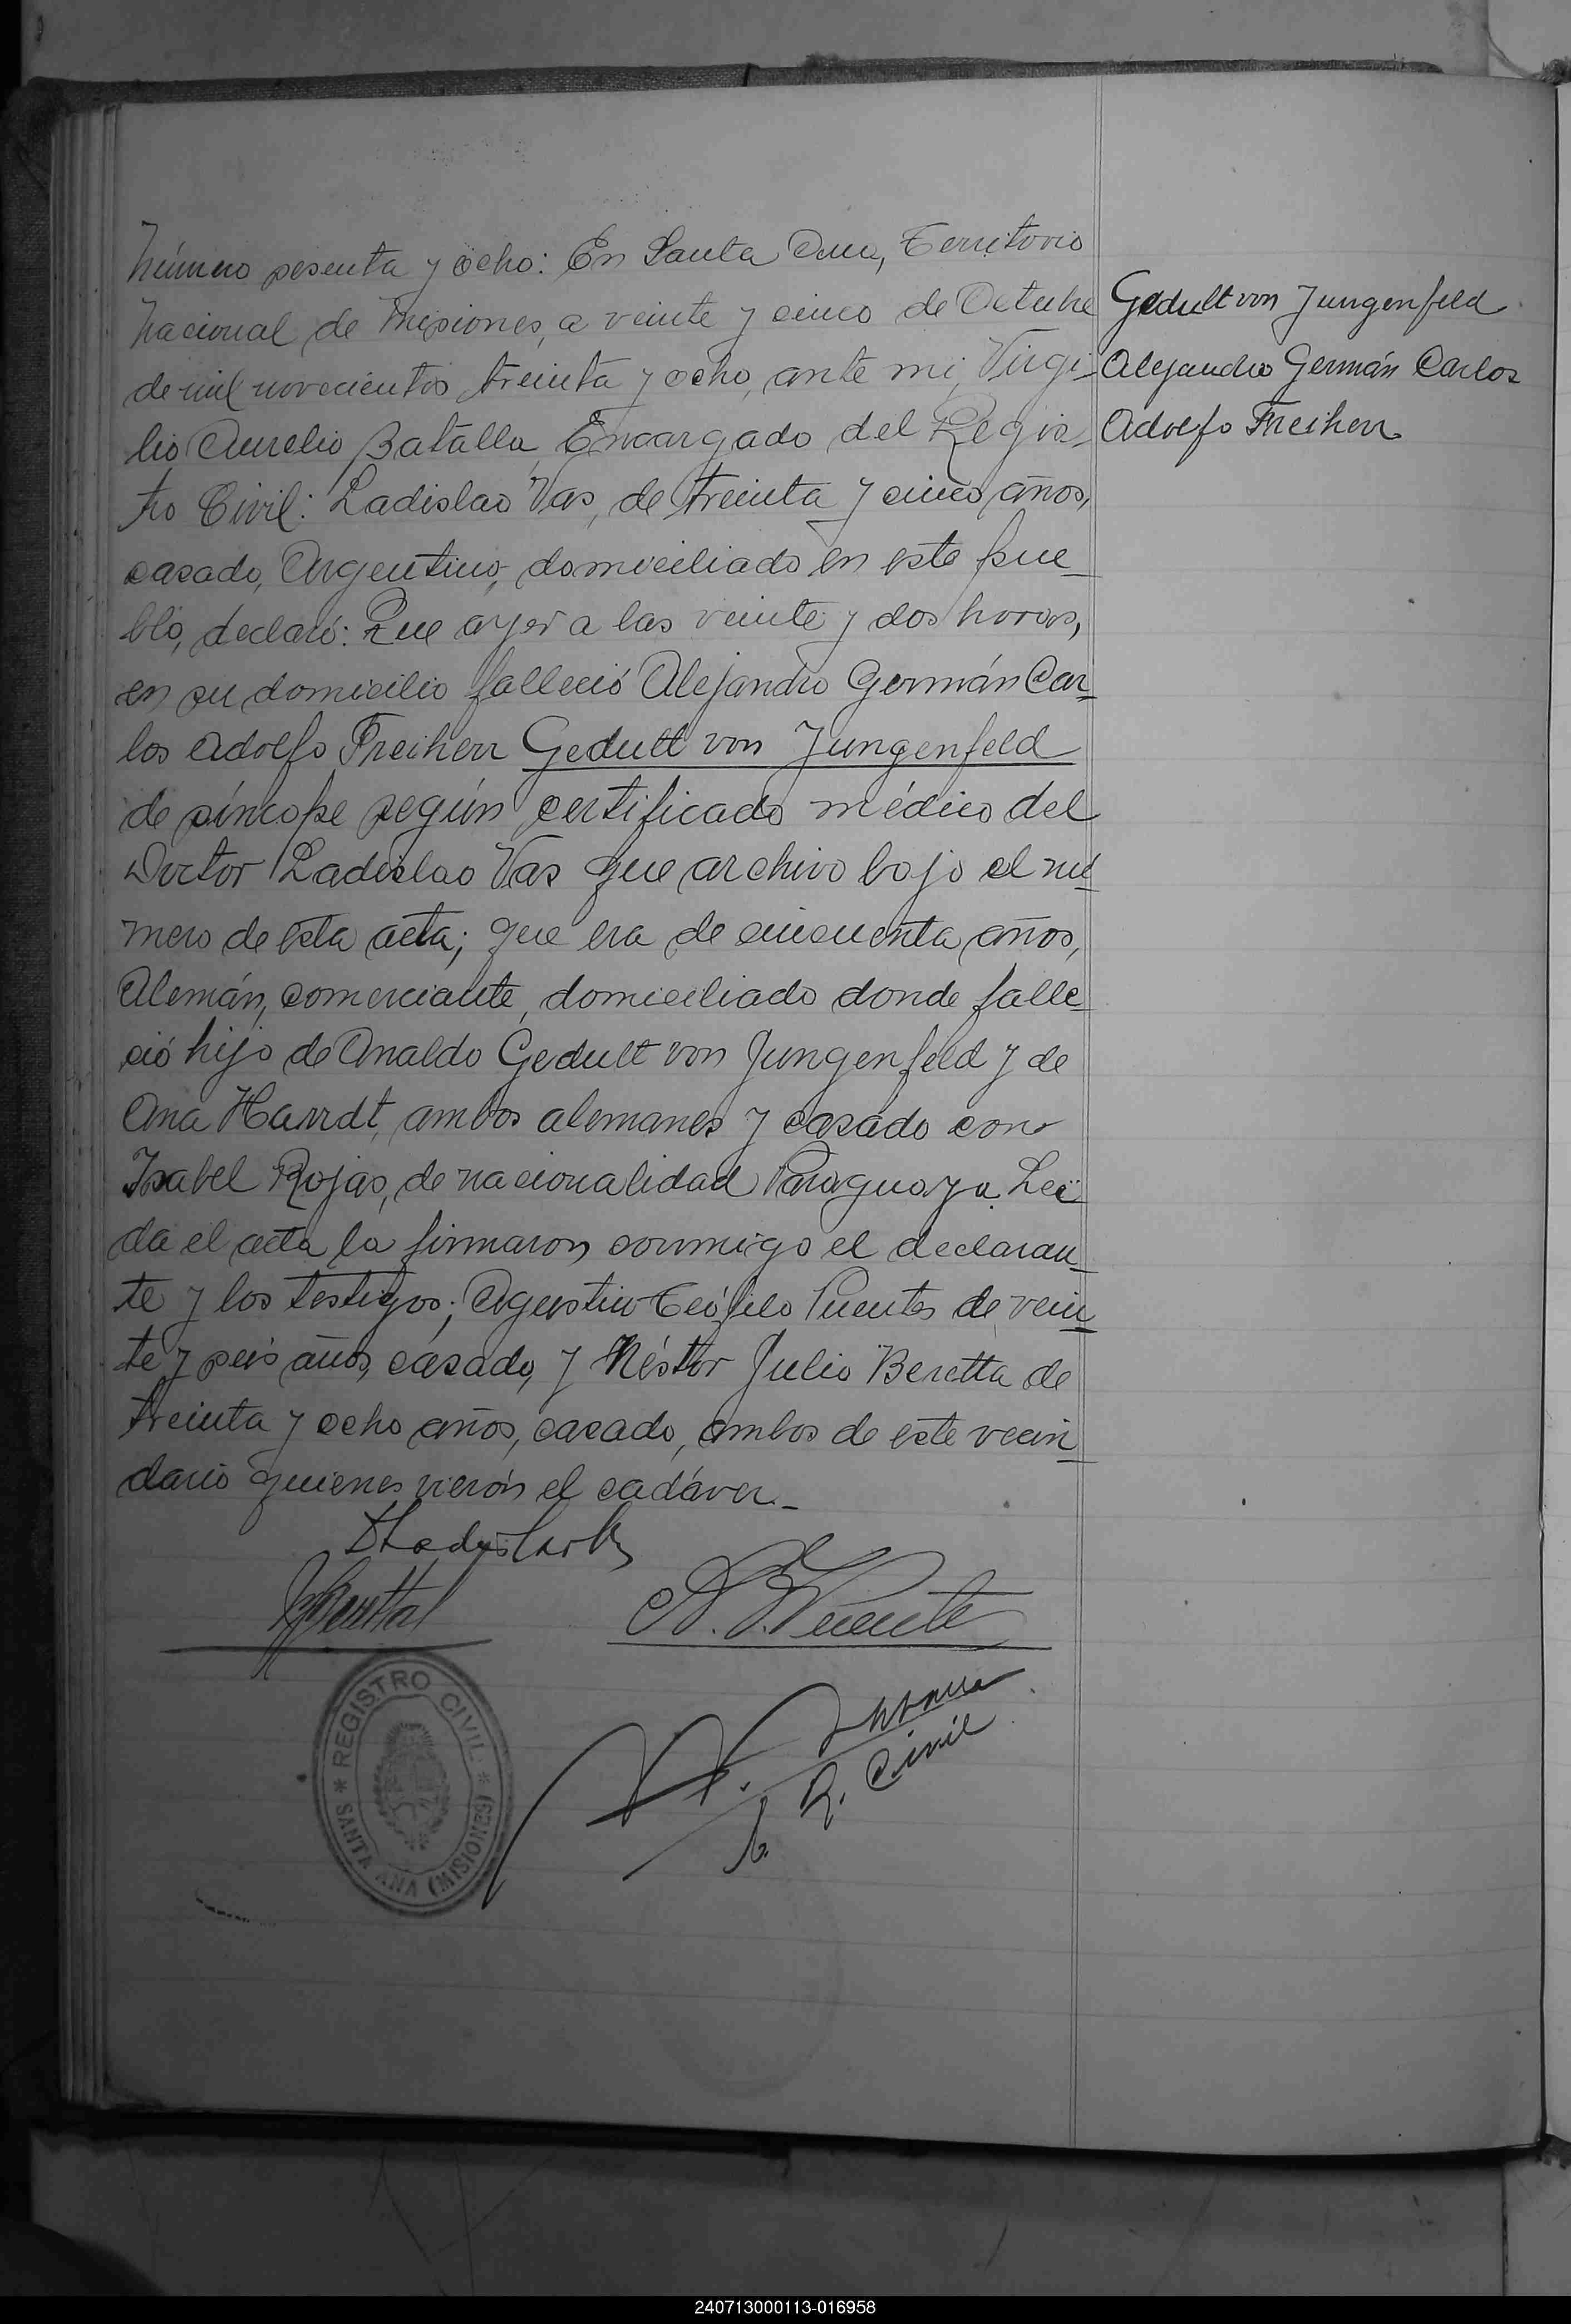 Número sesenta y ocho: En Santa Ana, Territorio
Nacional de Misiones, a veinte y cinco de Octubre
de mil novecientos treinta y ocho, ante mi, Virgi-
lio Aurelio Batalla, Encargado del Regis-
tro Civil: Ladislao Vas, de treinta y cinco años,
casado, Argentino, domiciliado en este pue-
blo, declaró: Que ayer a las veinte y dos horas,
en su domicilio falleció Alejandro Germán Car-
los Adolfo Freiherr Gedult von Jungenfeld
de síncope según certificado médico del
Doctor Ladislao Vas que archivo bajo el nú-
mero de esta acta; que era de cincuenta años,
Alemán, comerciante, domiciliado donde falle-
ció hijo de Arnaldo Gedult von Jungenfeld y de
Ana Harrdt, ambos alemanes y casado con
Isabel Rojas, de nacionalidad Paraguaya. Leí-
da el acta la firmaron conmigo el declaran-
te y los testigos; Agustin Teófilo Puentes de vein-
te y seis años, casado, y Néstor Julio Beretta de
treinta y ocho años, casado, ambos de este vecin-
dario quienes vierón el cadáver.-
R. Civil
REGISTRO CIVIL
SANTA ANA (MISIONES)
Gedult von Jungenfeld
Alejandro Germán Carlos
Adolfo Freiherr
240713000113-016958